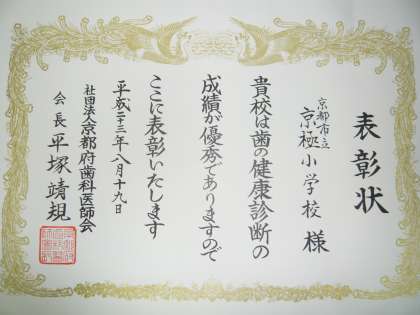 表彰状
京都市立
京極小学校 様
貴校は歯の健康診断の
成績が優秀でありますので
ここに表彰いたします
平成二十三年八月十九日
社団法人京都府歯科医師会
会長 平塚靖規